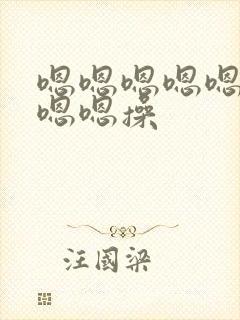 嗯嗯嗯嗯嗯
嗯嗯操
汪国梁